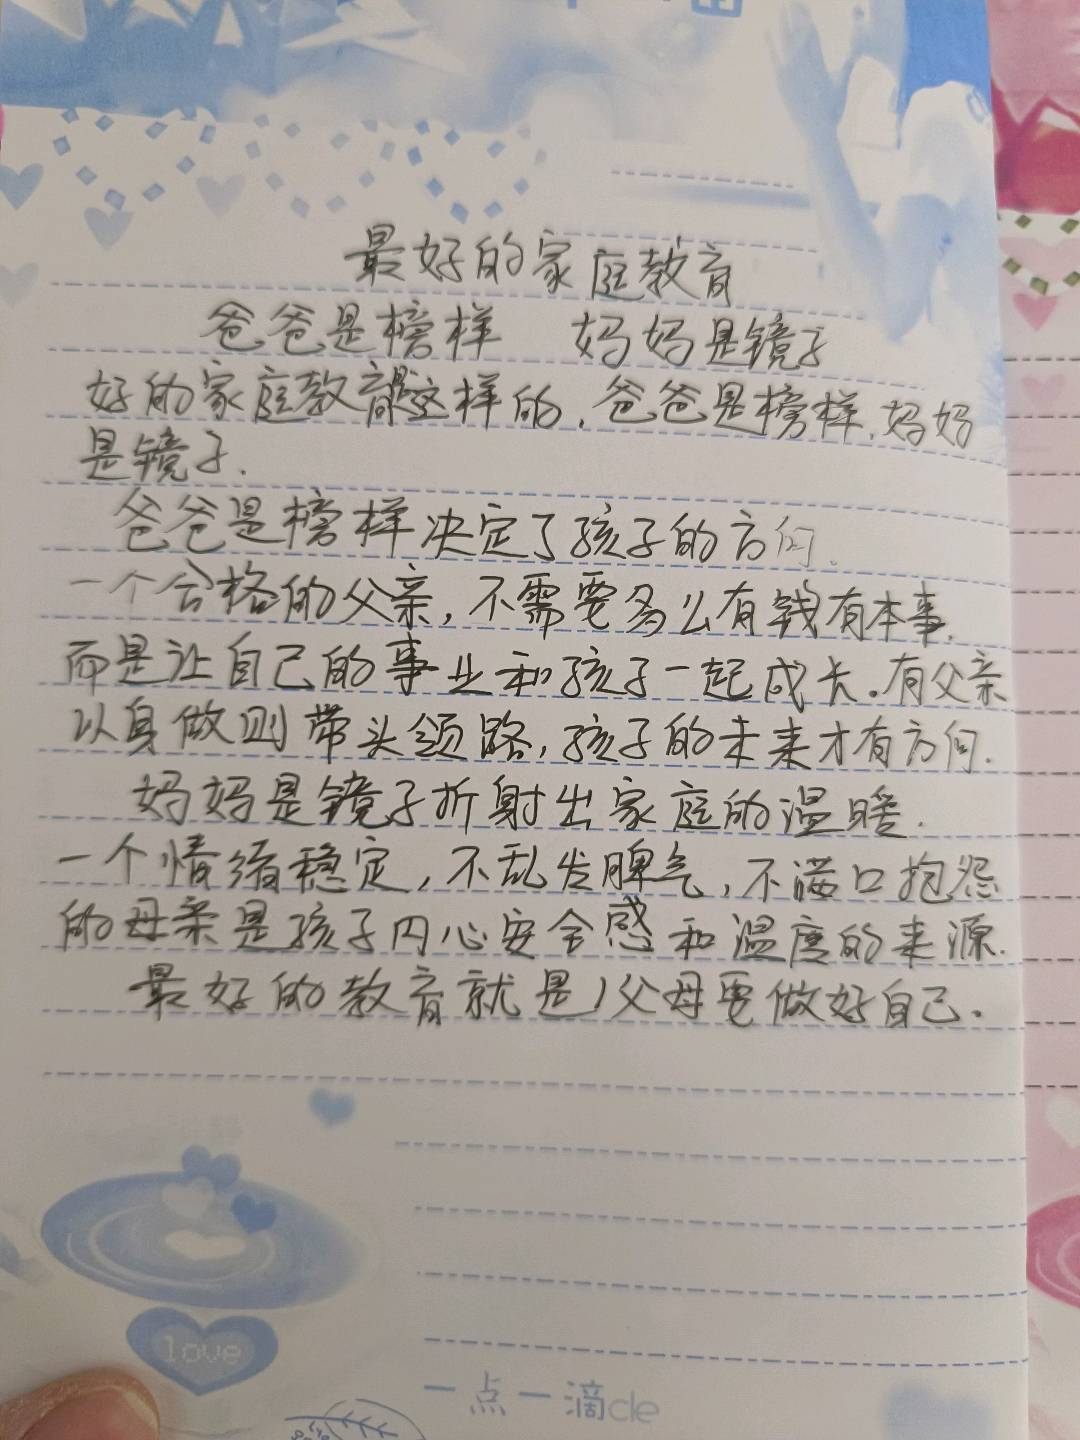 最好的家庭教育
爸爸是榜样 妈妈是镜子
好的家庭教育是这样的,爸爸是榜样,妈妈
是镜子.
爸爸是榜样决定了孩子的方向.
一个合格的父亲,不需要多么有钱有本事,
而是让自己的事业和孩子一起成长。有父亲
以身做则带头领路,孩子的未来才有方向.
妈妈是镜子折射出家庭的温暖.
一个情绪稳定,不乱发脾气,不满口抱怨
的母亲是孩子内心安全感和温度的来源.
最好的教育就是,父母要做好自己.
love
一点一滴cle